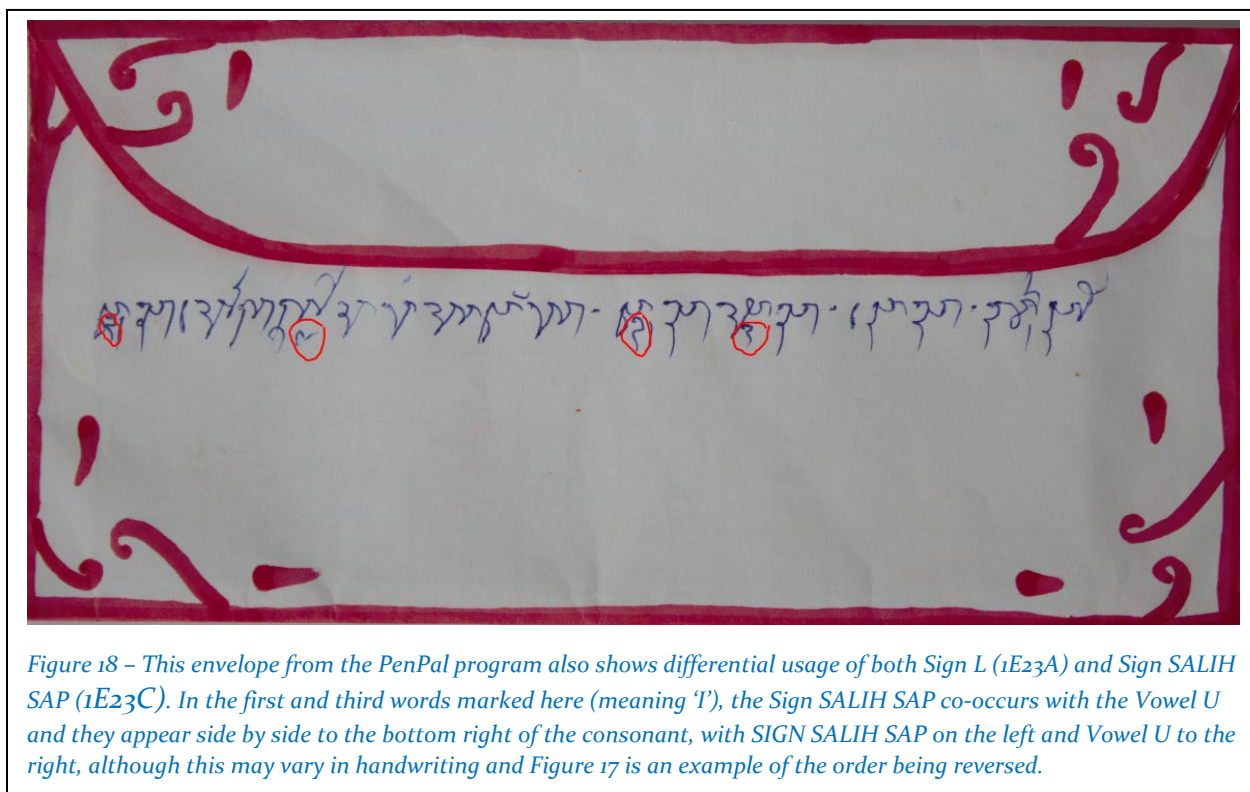 Figure 18 – This envelope from the PenPal program also shows differential usage of both Sign L (1E23A) and Sign SALIH
SAP (1E23C). In the first and third words marked here (meaning ‘I’), the Sign SALIH SAP co-occurs with the Vowel U
and they appear side by side to the bottom right of the consonant, with SIGN SALIH SAP on the left and Vowel U to the
right, although this may vary in handwriting and Figure 17 is an example of the order being reversed.